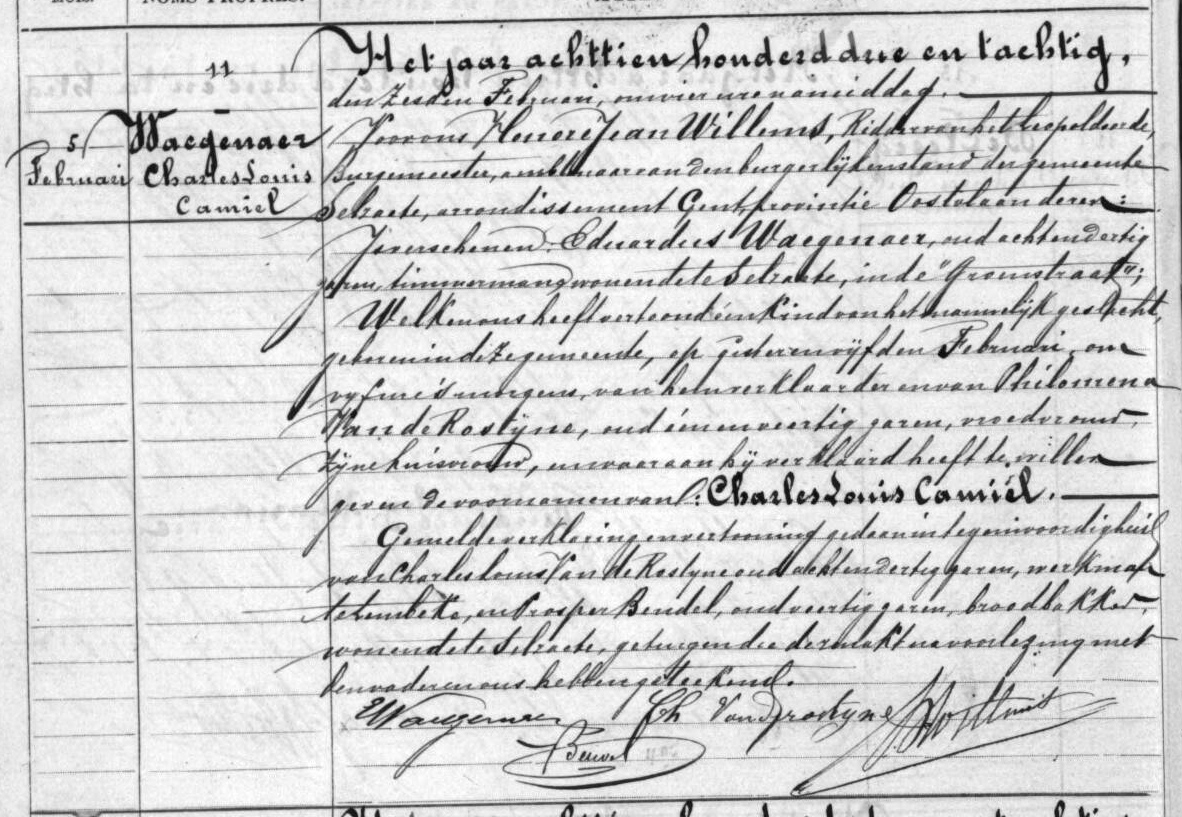 NOMS PROPRES.
11
5 Februari
Waegenaer
Charles Louis
Camiel
Het jaar achttien honderd drie en tachtig,
den zesden Februari, om vier ure namiddag.
Voor ons Honoré Jean Willems, Ridder van het Leopoldorde,
Burgemeester, ambtenaar van den burgerlijken stand der gemeente
Selzaete, arrondissement Gent, provintie Oostvlaanderen:
Is verschenen: Eduardus Waegenaer, oud acht en dertig
jaren, timmerman, wonende te Selzaete, in de "Groenstraat";
Welke ons heeft vertoond één kind van het mannelijk geslacht,
geboren in deze gemeente, op gisteren vijfden Februari, om
vijf ure 's morgens, van hem verklaarder en van Philomena
Van de Rostijne, oud één en veertig jaren, vroedvrouw,
zijne huisvrouw, en waaraan hij verklaard heeft te willen
geven de voornamen van: Charles Louis Camiël.
Gemelde verklaring en vertooning gedaan in tegenwoordigheid
van Charles Louis Van de Rostyne oud acht en dertig jaren, werkman
te Lembeke, en Prosper, oud veertig jaren, broodbakker,
wonende te Selzaete, getuigen die deze akt na voorlezing met
den vader en ons hebben geteekend.
E Waegenaer Ch Van De rostyne Willems